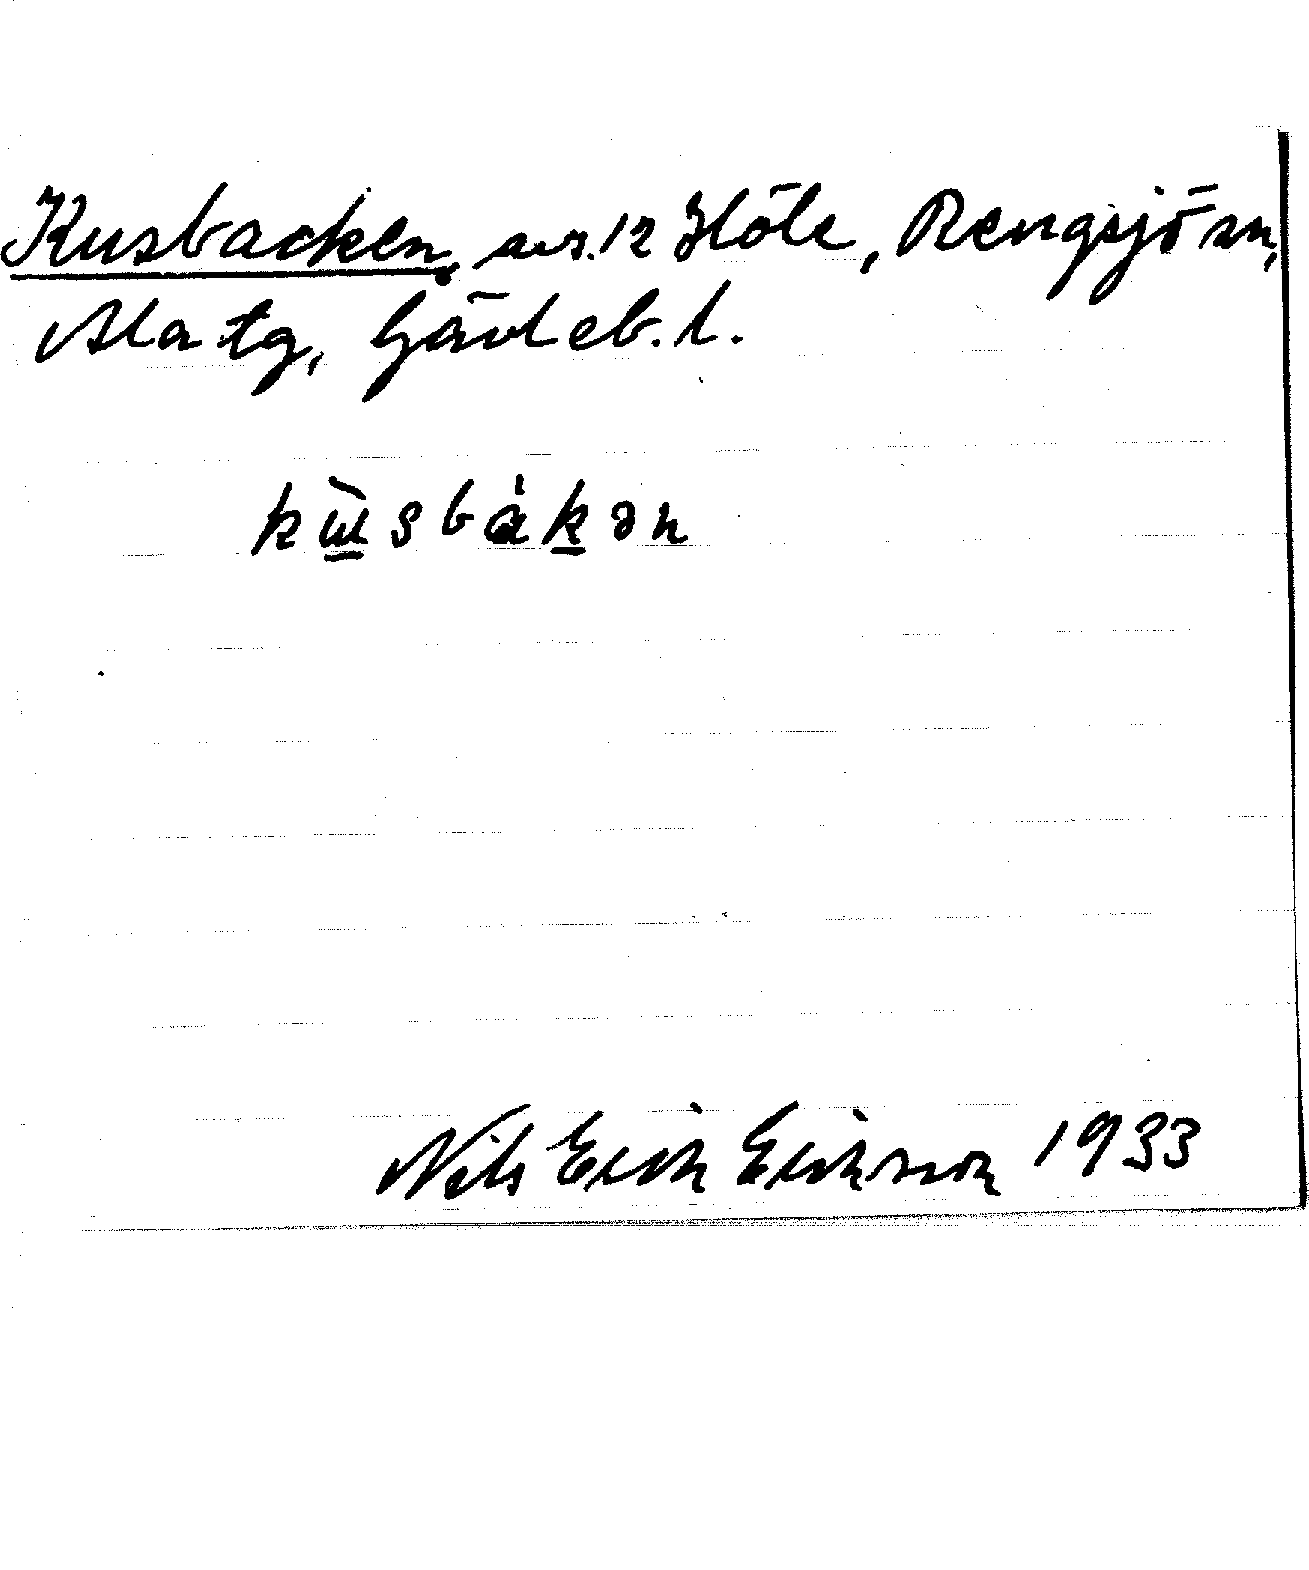 Kusbacken, avs. 12 Höle, Rengsjö sn,
Ala tg, Gävleb. l.
kɯ̀sbàkən
Nils Erik Eriksson 1933